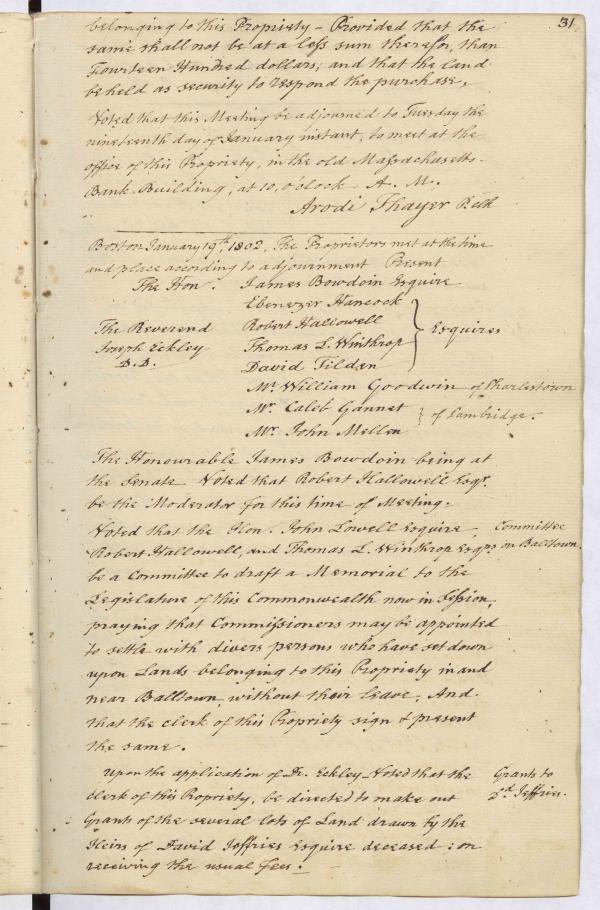 31
belonging to this Propriety – Provided that the
same shall not be at a less sum therefor, than
Fourteen Hundred dollars; and that the land
be held as security to respond the purchase.
Voted that this Meeting be adjourned to Tuesday the
nineteenth day of January instant, to meet at the
office of this Propriety, in the old Massachusetts
Bank Building, at 10, o'clock A. M.
Arodi Thayer P. Clk
Boston January 19th 1802, The Proprietors met at the time
and place according to adjournment Present
The Hon. James Bowdoin Esquire
Ebenezer Hancock
The Reverend Robert Hallowell } Esquires
Joseph Eckley Thomas L. Winthrop
D. D. David Tilden
Mr. William Goodwin of Charlestown
Mr. Caleb Gannet } of Cambridge.
Mr. John Mellen
The Honourable James Bowdoin being at
the Senate Voted that Robert Hallowell Esqr.
be the Moderator for this time of Meeting.
Voted that the Hon. John Lowell Esquire, Committee
Robert Hallowell, and Thomas L. Winthrop Esqrs on Balltown.
be a Committee to draft a Memorial to the
Legislature of this Commonwealth now in Session,
praying that Commissioners may be appointed
to settle with divers persons who have set down
upon Lands belonging to this Propriety in and
near Balltown, without their leave, And
that the clerk of this Propriety sign & present
the same.
Upon the application of Dr. Eckley Voted that the Grants to
clerk of this Propriety, be directed to make out Dd. Jeffries.
Grants of the several lots of Land drawn by the
Heirs of David Jeffries Esquire deceased: on
receiving the usual fees.